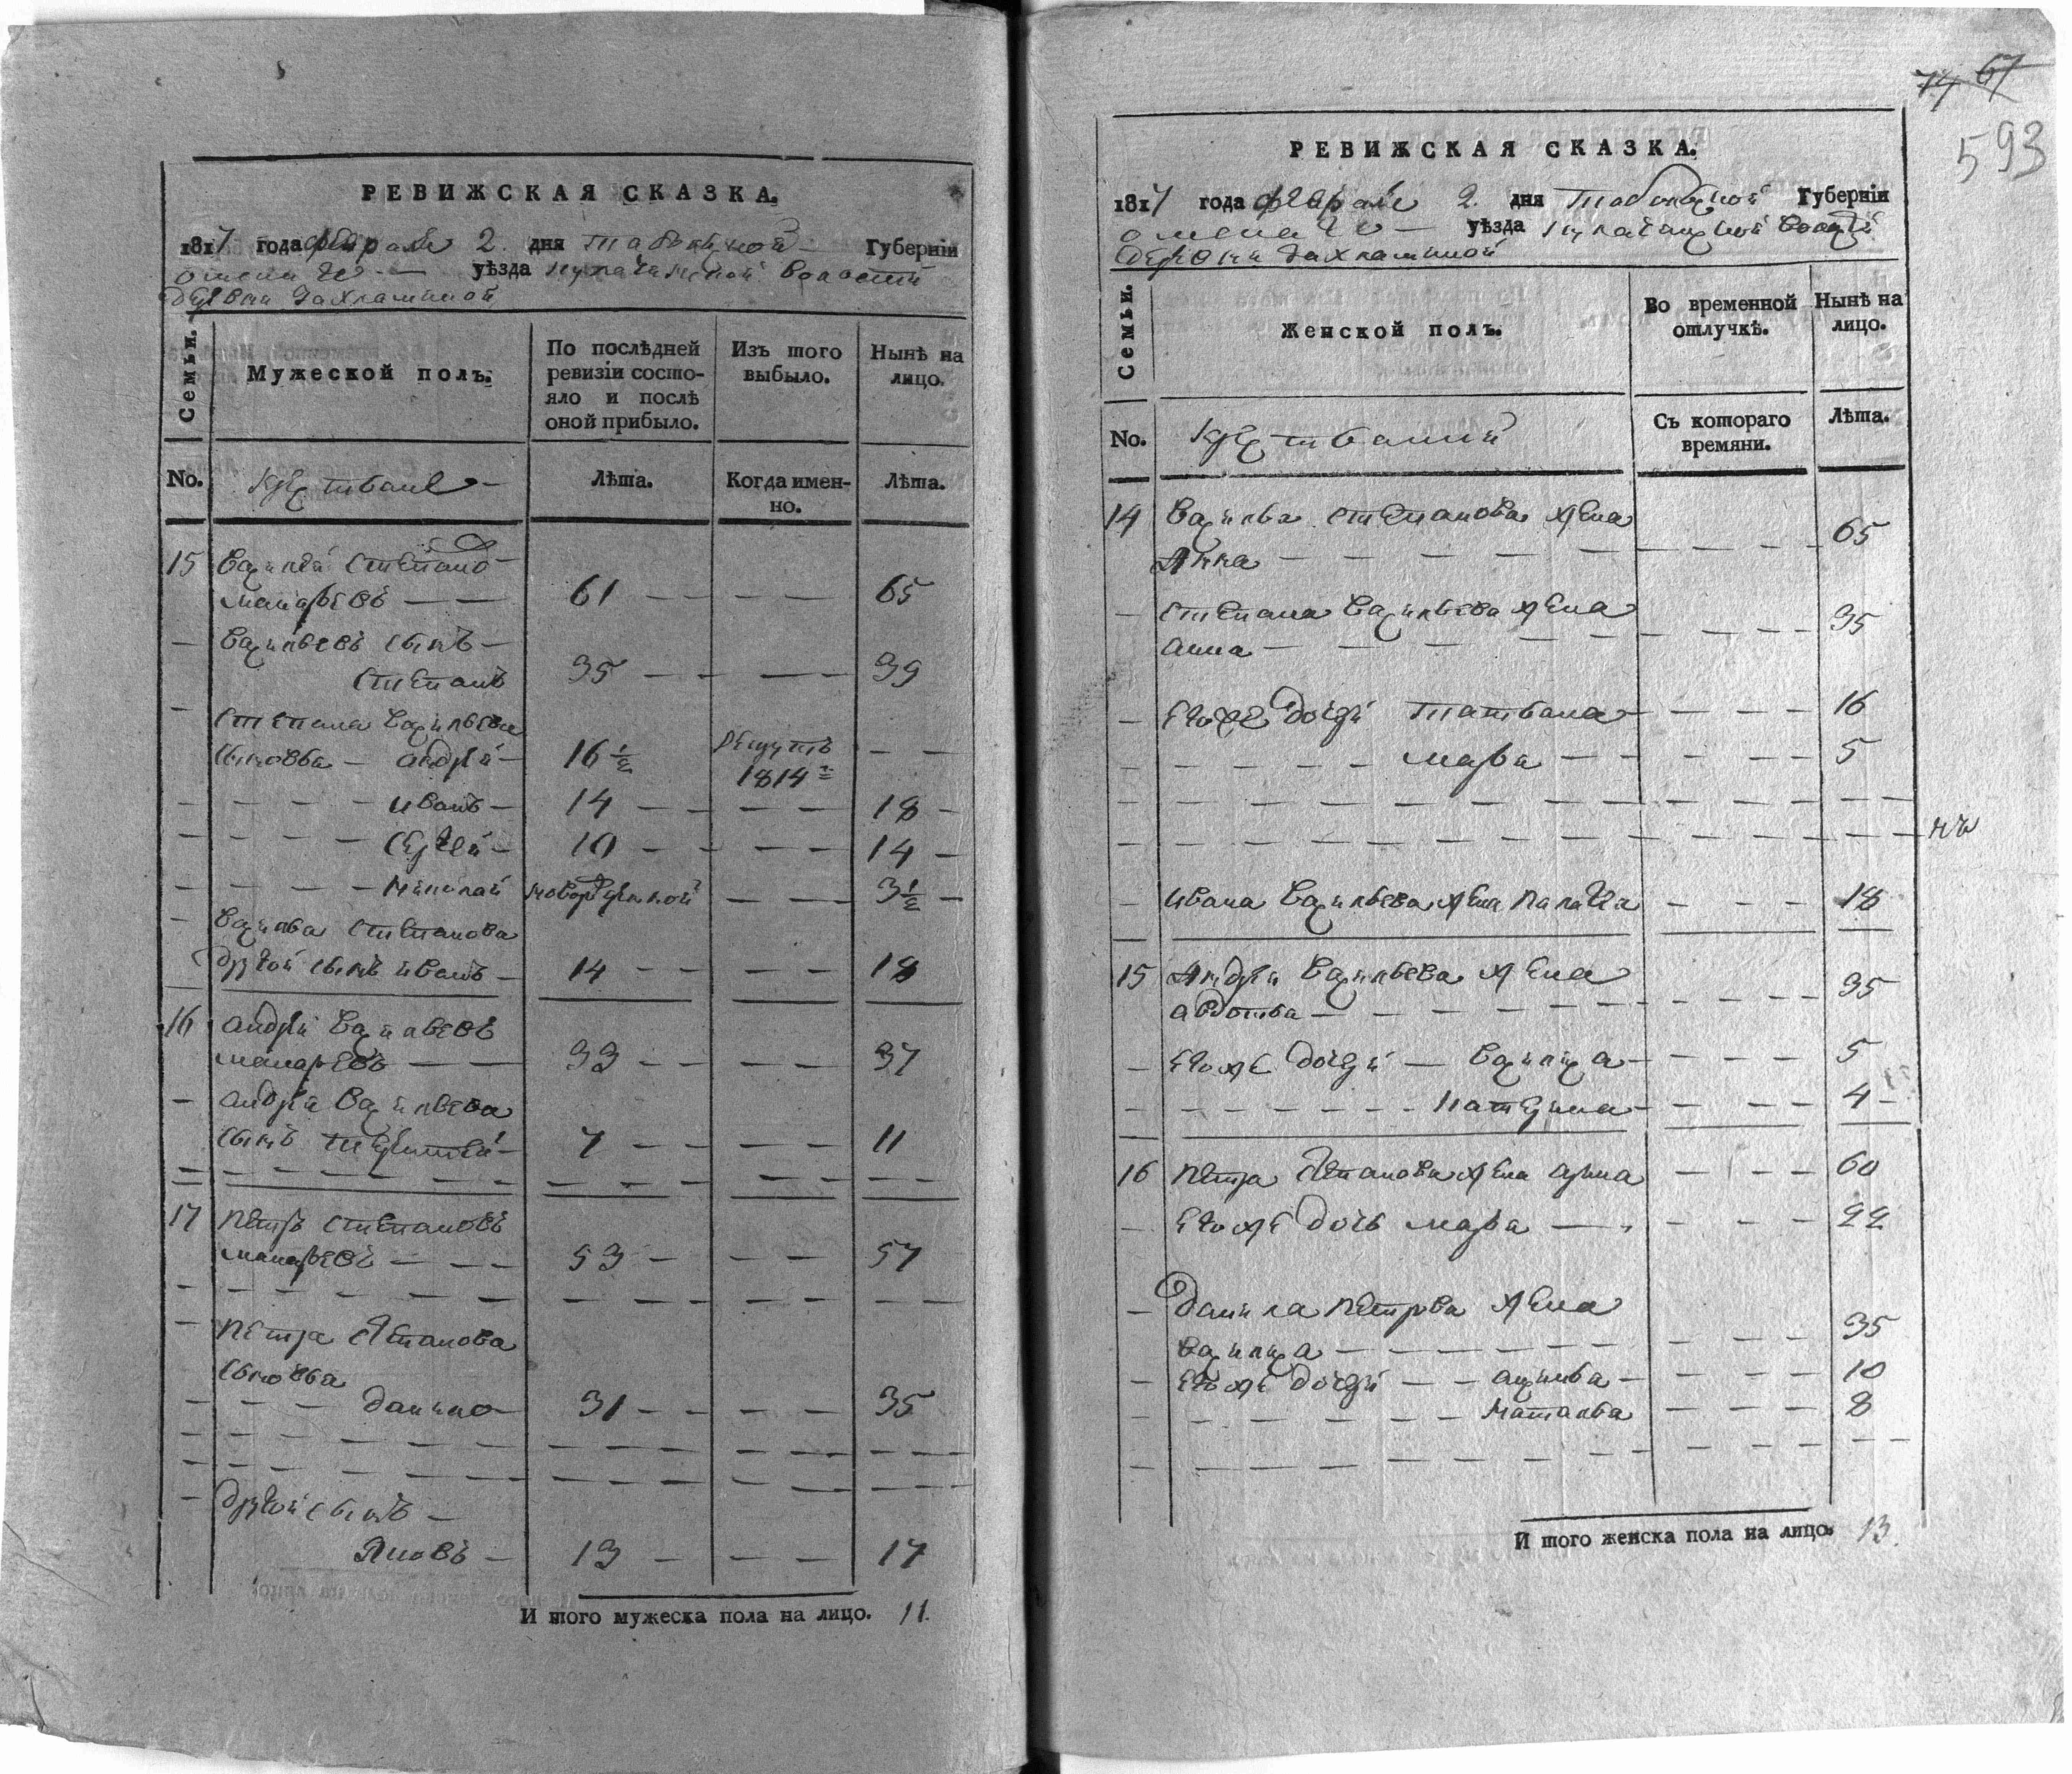 РЕВИЖСКАЯ СКАЗКА.
1817 года февраля 2. дня тобольской Губерніи
омскаго уѣзда кулачинской волости
деревни Захламиной
Семьи.
Мужеской полъ.
По послѣдней ревизіи состо-
яло и послѣ
оной прибыло.
Изъ того
выбыло.
Нынѣ на
лицо.
No. крестьяне
Лѣта.
Когда имен-
но.
Лѣта.
15 Василей степано
макарьевъ — — 61 — — — — 65
— Васильевъ сынъ —
степанъ 35 — — — — 39
— степана Васильева
сыновья — андрей — 16 1/2 рекрутъ 1814 — —
— — — — иванъ — 14 — — — — 18 —
— — — — сергей — 10 — — — — 14 —
— — — — николай новорожденной — — — 3 1/2 —
— Василья степанова
другой сынъ иванъ — 14 — — — — 18
16 андрей Васильевъ
макарьевъ — — 33 — — — — 37
— андрея Васильева
сынъ терентей — 7 — — — — 11
17 петръ степановъ
макарьевъ — — — 53 — — — 57
— петра степанова
сыновья
— — — данило — 31 — — — — 35
— другой сынъ —
яковъ — 13 — — — 17
И того мужеска пола на лицо. 11.
74 67
593
РЕВИЖСКАЯ СКАЗКА.
1817 года февраля 2. дня тобольской Губерніи
омскаго — уѣзда кулачинской волости
деревни Захламиной
Семьи.
Женской полъ.
Во временной
отлучкѣ.
Нынѣ на
лицо.
No. крестьяне
Съ котораго
времяни.
Лѣта.
14 Василья степанова жена
Анна — — — — — — — — 65
— степана Васильева жена
анна — — — — — — — — 35
— егоже дочери татьяна — — — — 16
— — — — — марья — — — — — 5
— ивана Васильева жена палагея — — — 18
15 Андрея Васильева жена
авдотья — — — — — — — — 35
— егоже дочери — Василиса — — — — 5
— — — — — — катерина — — — — 4 —
16 петра степанова жена арина — — — 60
— егоже дочь марья — — — — — 22
— данила петрова жена
Василиса — — — — — — — — 35
— егоже дочери — — аксинья — — — — 10
— — — — — — наталья — — — — 8
И того женска пола на лицо. 13.